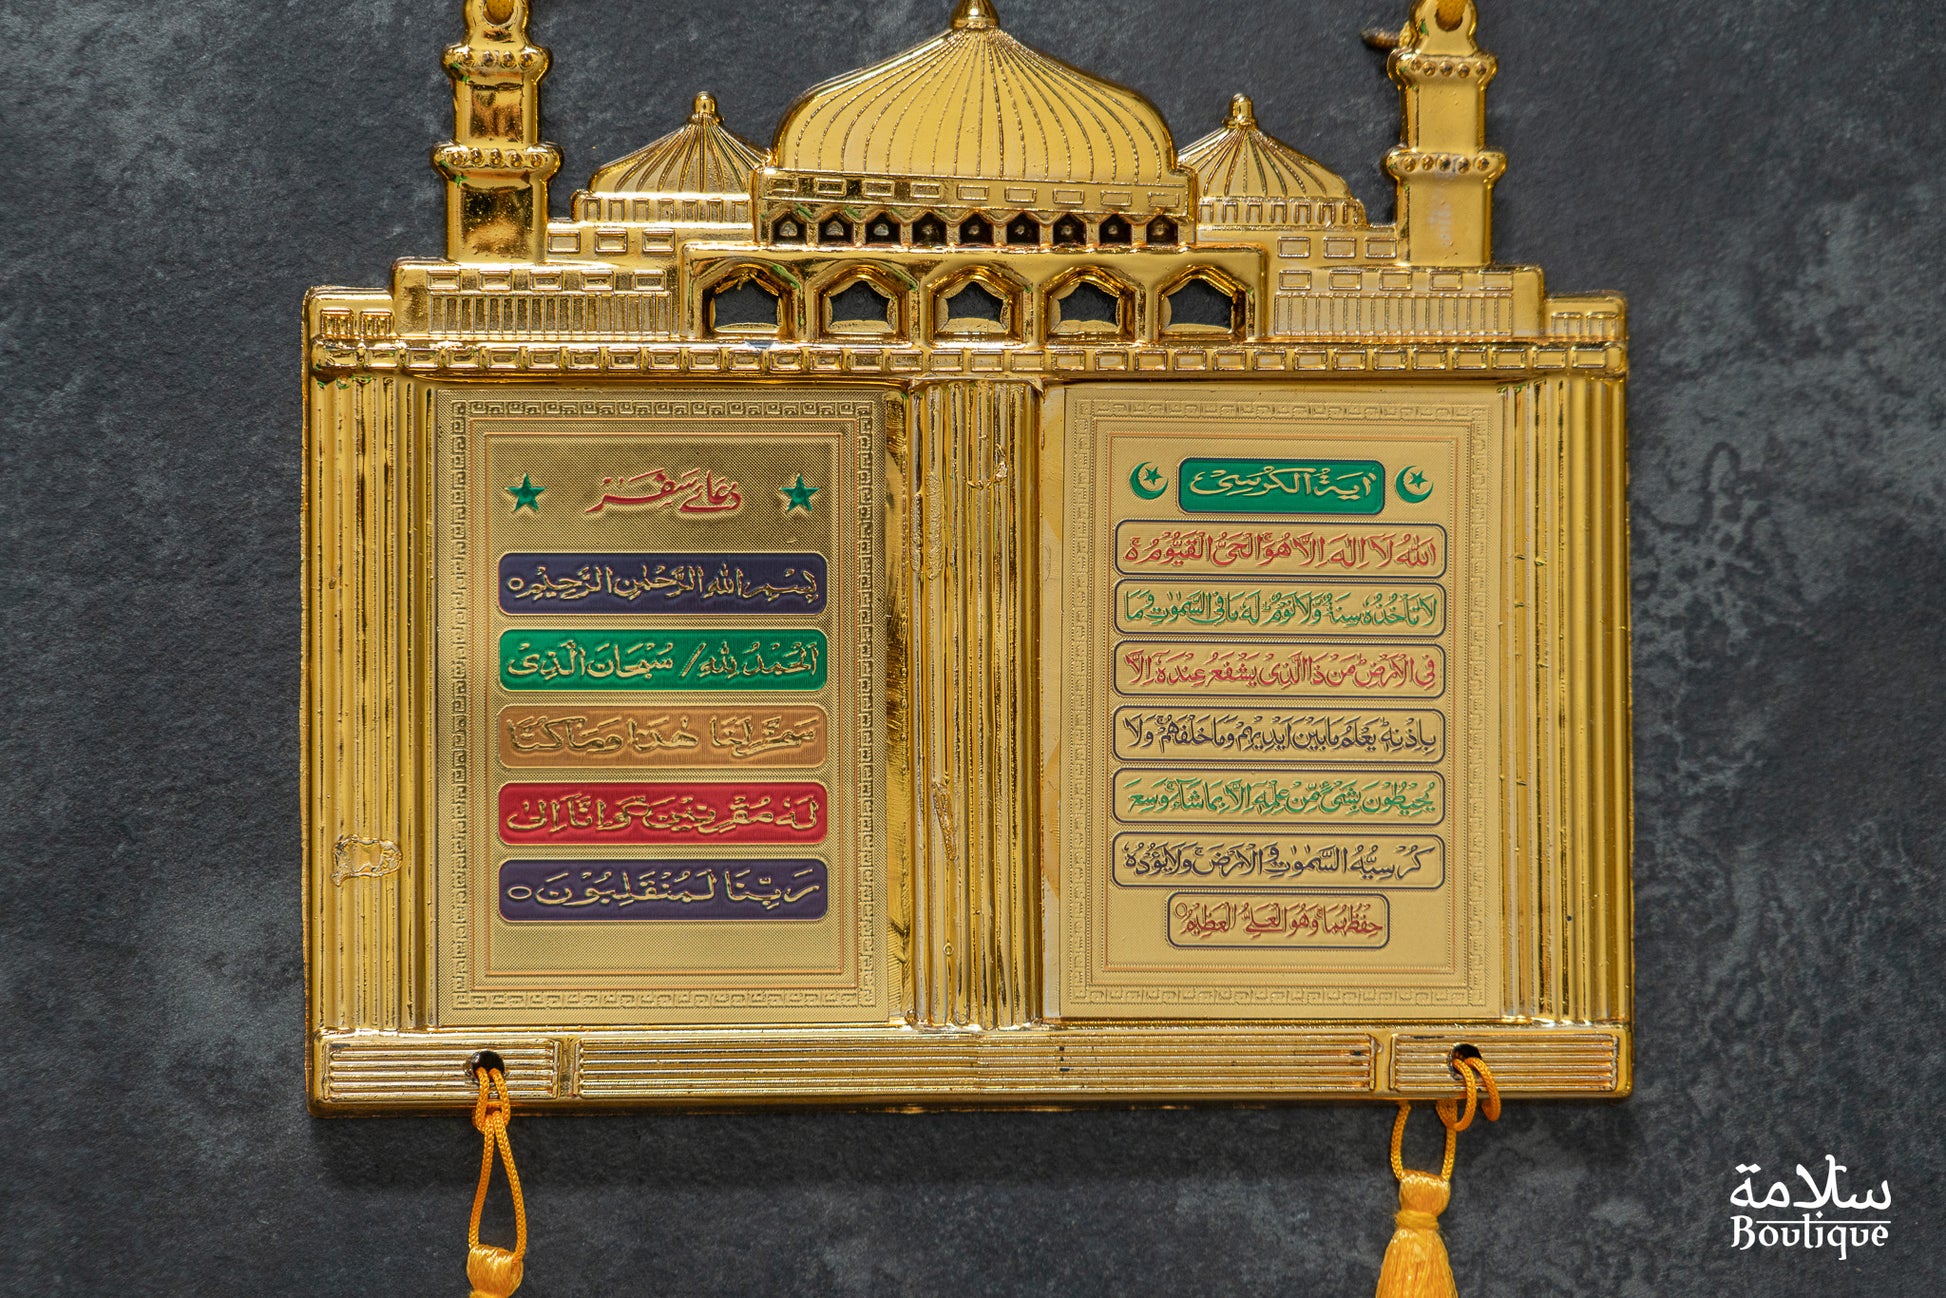 دعائے سفر
بِسْمِ اللهِ الرَّحْمٰنِ الرَّحِيْمِ ○
اَلْحَمْدُ لِلّٰهِ / سُبْحَانَ الَّذِىْ
سَخَّرَ لَنَا هٰذَا وَمَا كُنَّا
لَهٗ مُقْرِنِيْنَ وَاِنَّا اِلىٰ
رَبِّنَا لَمُنْقَلِبُوْنَ ○
اٰيَةُ الْكُرْسِىْ
اَللهُ لَا اِلٰهَ اِلَّا هُوَ الْحَىُّ الْقَيُّوْمُ ۀ
لَا تَأْخُذُهٗ سِنَةٌ وَّلَا نَوْمٌ ط لَهٗ مَا فِى السَّمٰوٰتِ وَمَا
فِى الْاَرْضِ ط مَنْ ذَا الَّذِىْ يَشْفَعُ عِنْدَهٗ اِلَّا
بِاِذْنِهٖ ط يَعْلَمُ مَا بَيْنَ اَيْدِيْهِمْ وَمَا خَلْفَهُمْ وَلَا
يُحِيْطُوْنَ بِشَىْءٍ مِّنْ عِلْمِهٖ اِلَّا بِمَا شَآءَ وَسِعَ
كُرْسِيُّهُ السَّمٰوٰتِ وَالْاَرْضَ وَلَا يَؤُدُهٗ
حِفْظُهُمَا وَهُوَ الْعَلِىُّ الْعَظِيْمُ ○
سلامة
Boutique